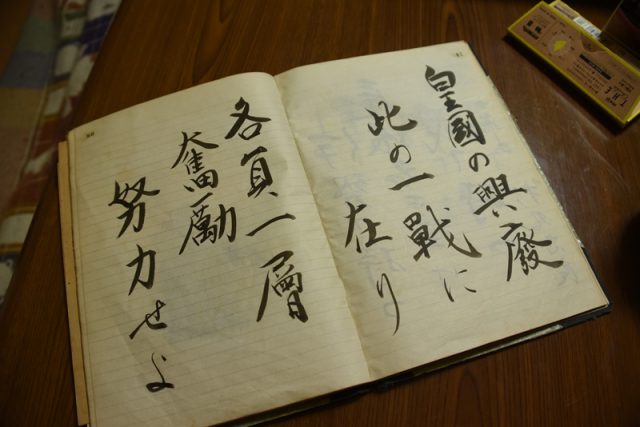 皇國の興廢
此の一戰に
在り
各員一層
奮励
努力せよ